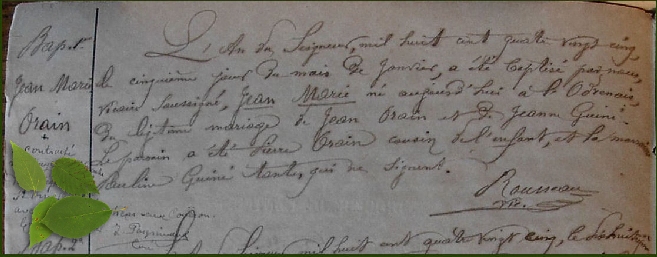 Bap. 1er
Jean Marie
Orain
+
contracté
L'An du Seigneur, mil huit cent quatre vingt cinq,
le cinquième jour du mois de Janvier, a été baptisé par nous,
vicaire soussigné, Jean Marie né aujourd'hui à la
du légitime mariage de Jean Orain et de Jeanne Guiné.
Le parrain a été Pierre Orain cousin de l'enfant, et la marraine
Pauline Guiné tante, qui ne signent.
Rousseau
vic.
Bap. 2e
L'An du Seigneur mil huit cent quatre vingt cinq, le